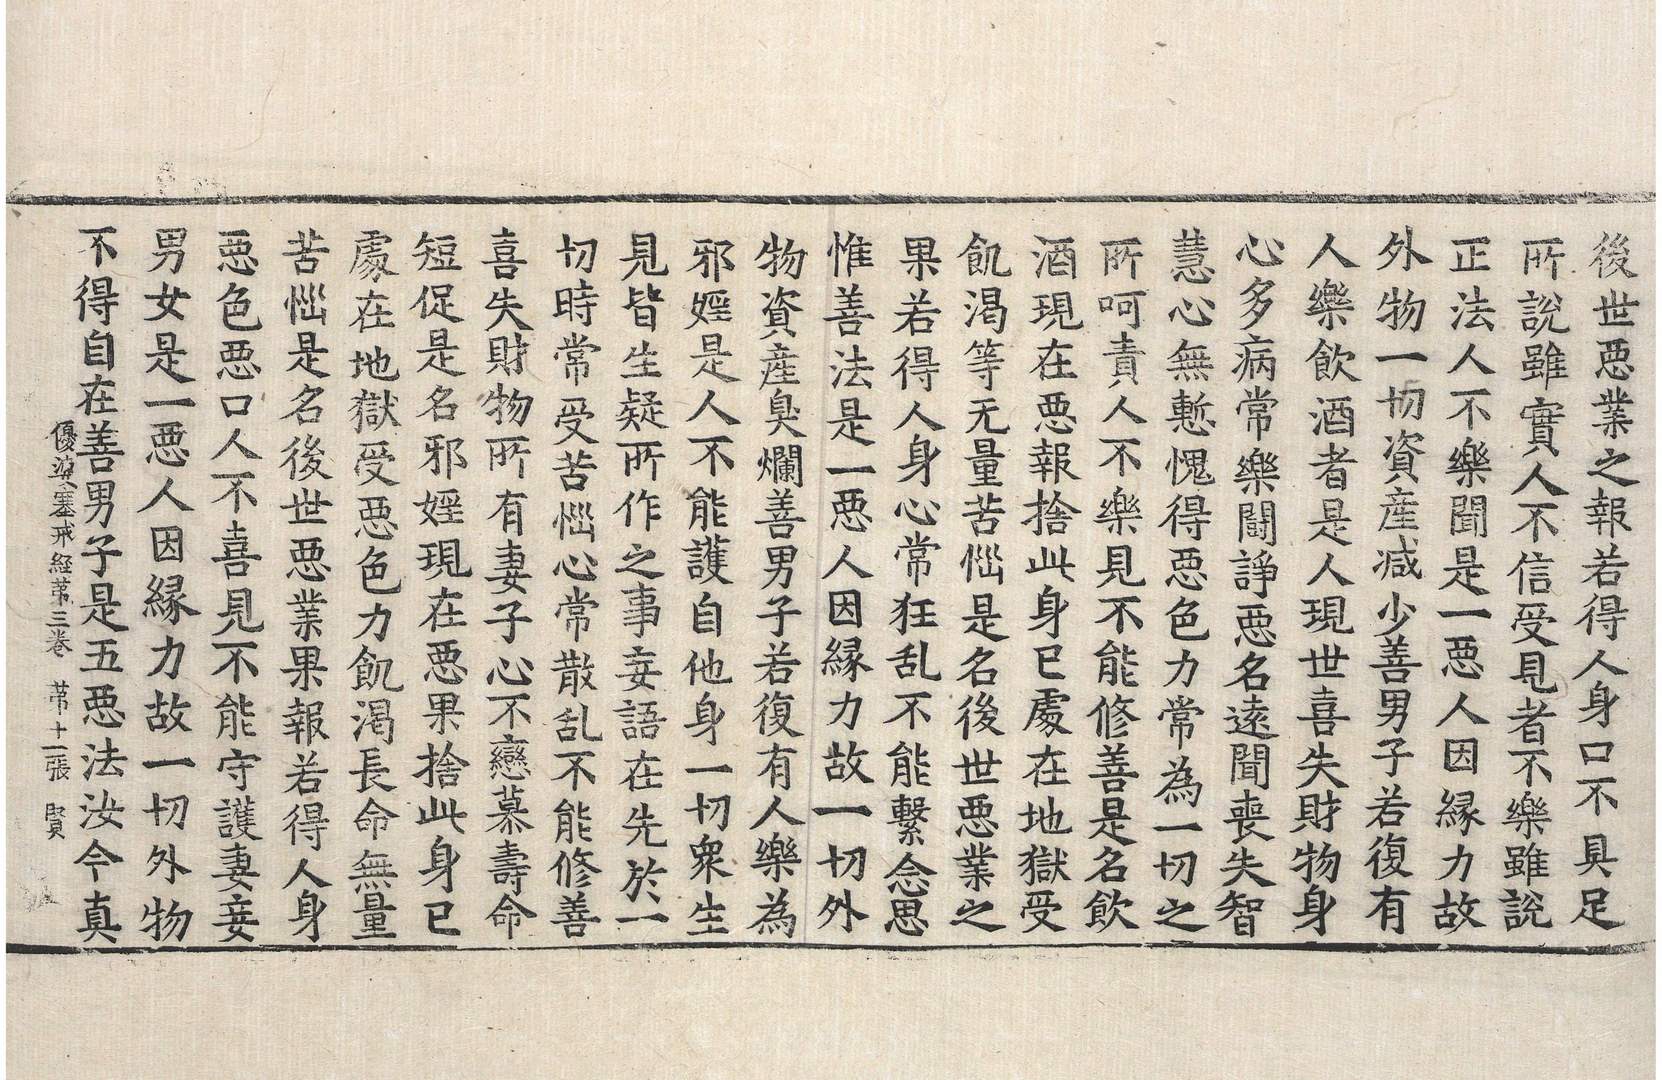 後世惡業之報若得人身口不具足
所說雖實人不信受見者不樂雖說
正法人不樂聞是一惡人因縁力故
外物一切資産减少善男子若復有
人樂飲酒者是人現世喜失財物身
心多病常樂鬪諍惡名遠聞喪失智
慧心無慙愧得惡色力常為一切之
所呵責人不樂見不能修善是名飲
酒現在惡報捨此身已處在地獄受
飢渇等无量苦惱是名後世惡業之
果若得人身心常狂乱不能繫念思
惟善法是一惡人因縁力故一切外
物資産臭爛善男子若復有人樂為
邪婬是人不能護自他身一切衆生
見皆生疑所作之事妄語在先於一
切時常受苦惱心常散乱不能修善
喜失財物所有妻子心不戀慕壽命
短促是名邪婬現在惡果捨此身已
處在地獄受惡色力飢渇長命無量
苦惱是名後世惡業果報若得人身
惡色惡口人不喜見不能守護妻妾
男女是一惡人因縁力故一切外物
不得自在善男子是五惡法汝今真
優婆塞戒經苐三卷 苐十二張 賢